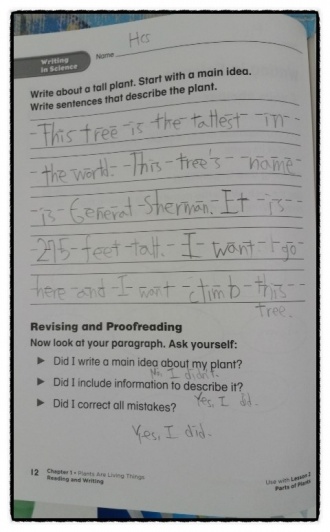 Writing
in Science
Name
Write about a tall plant. Start with a main idea.
Write sentences that describe the plant.
This tree is the tallest in
the world. This tree's name
is General Sherman. It is
275 feet tall. I want go
here and I want climb this
tree.
Revising and Proofreading
Now look at your paragraph. Ask yourself:
▶ Did I write a main idea about my plant?
No, I didn't.
▶ Did I include information to describe it?
Yes, I did.
▶ Did I correct all mistakes?
Yes, I did.
12 Chapter 1 • Plants Are Living Things
Reading and Writing
Use with Lesson 2
Parts of Plants